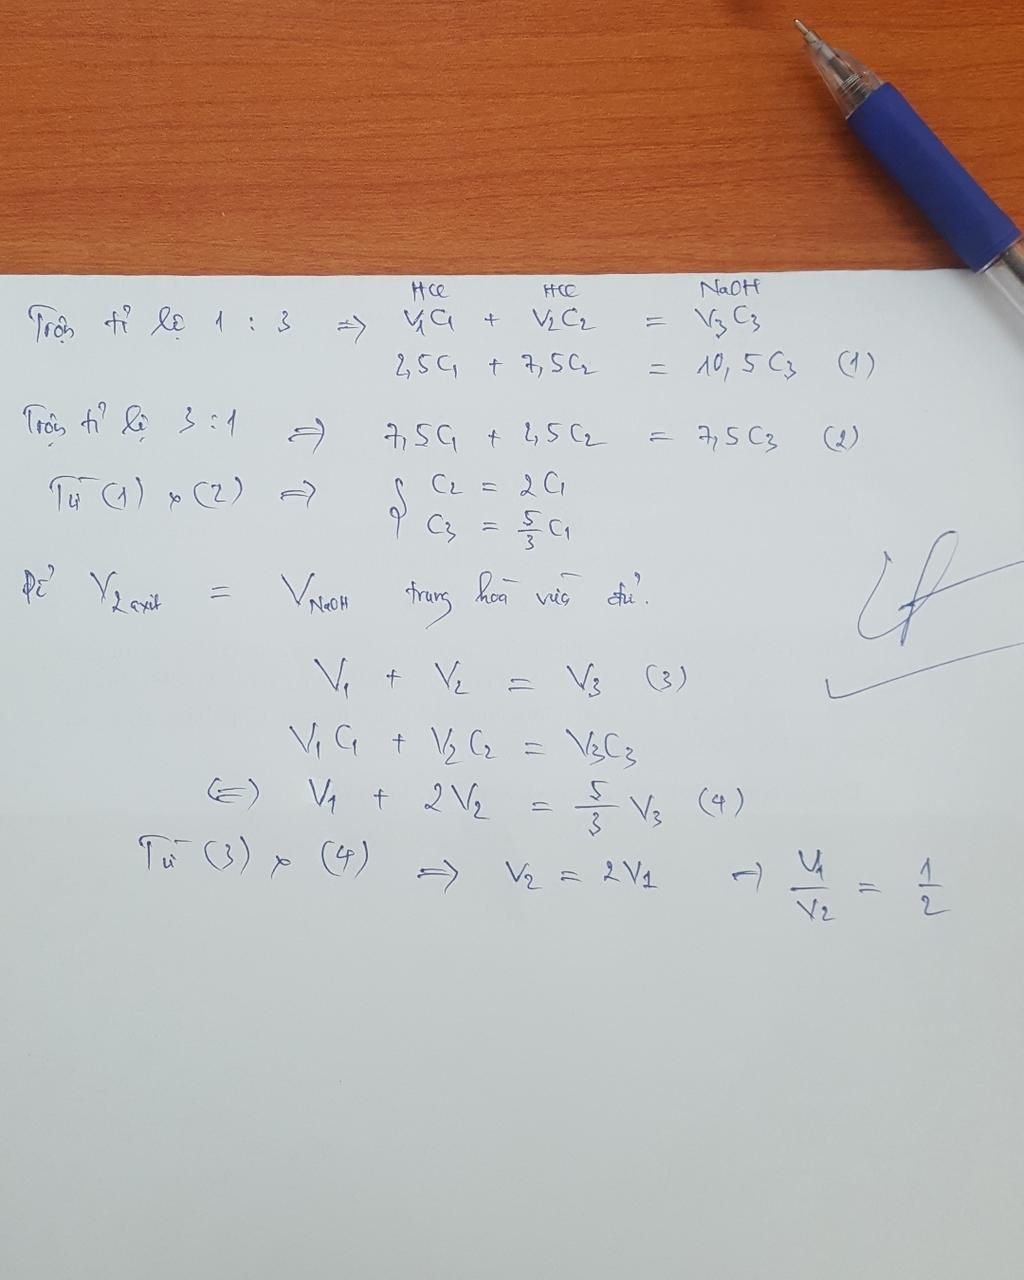 HCl HCl NaOH
Trộn tỉ lệ 1 : 3 => V₁C₁ + V₂C₂ = V₃C₃
2,5C₁ + 7,5C₂ = 10,5C₃ (1)
Trộn tỉ lệ 3:1 => 7,5C₁ + 2,5C₂ = 7,5C₃ (2)
Từ (1) & (2) => { C₂ = 2C₁
C₃ = 5/3 C₁
Để V₂ axit = V NaOH trung hoà vừa đủ.
V₁ + V₂ = V₃ (3)
V₁C₁ + V₂C₂ = V₃C₃
(=) V₁ + 2V₂ = 5/3 V₃ (4)
Từ (3) & (4) => V₂ = 2V₁ => V₁/V₂ = 1/2